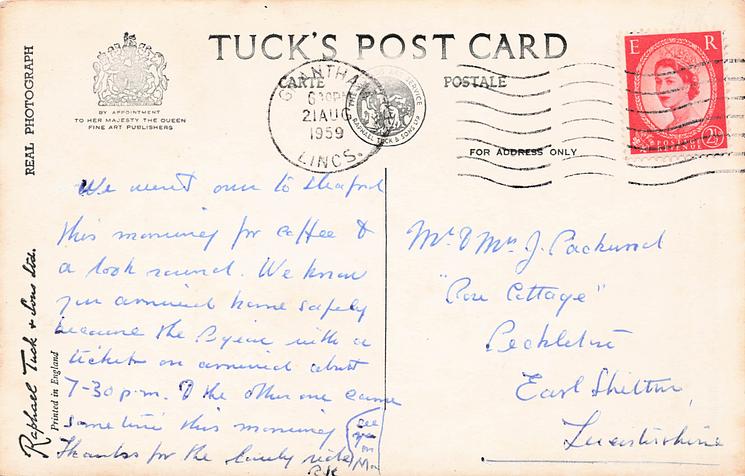 TUCK'S POST CARD
CARTE POSTALE
REAL PHOTOGRAPH
BY APPOINTMENT
TO HER MAJESTY THE QUEEN
FINE ART PUBLISHERS
GRANTHAM
6 30PM
21 AUG
1959
LINCS.
RAPHAEL TUCK & SONS LTD
E R
POSTAGE
REVENUE
2½
FOR ADDRESS ONLY
Raphael Tuck & Sons Ltd.
Printed in England
We went over to Sleaford
this morning for coffee &
a look round. We know
you arrived home safely
because the Pigeon with a
ticket on arrived about
7-30 p.m. & the other one came
sometime this morning
Thanks for the lovely ride
see
you
on
Mr & Mrs J. Packwood
"Rose Cottage"
Peckleton
Earl Shilton,
Leicestershire